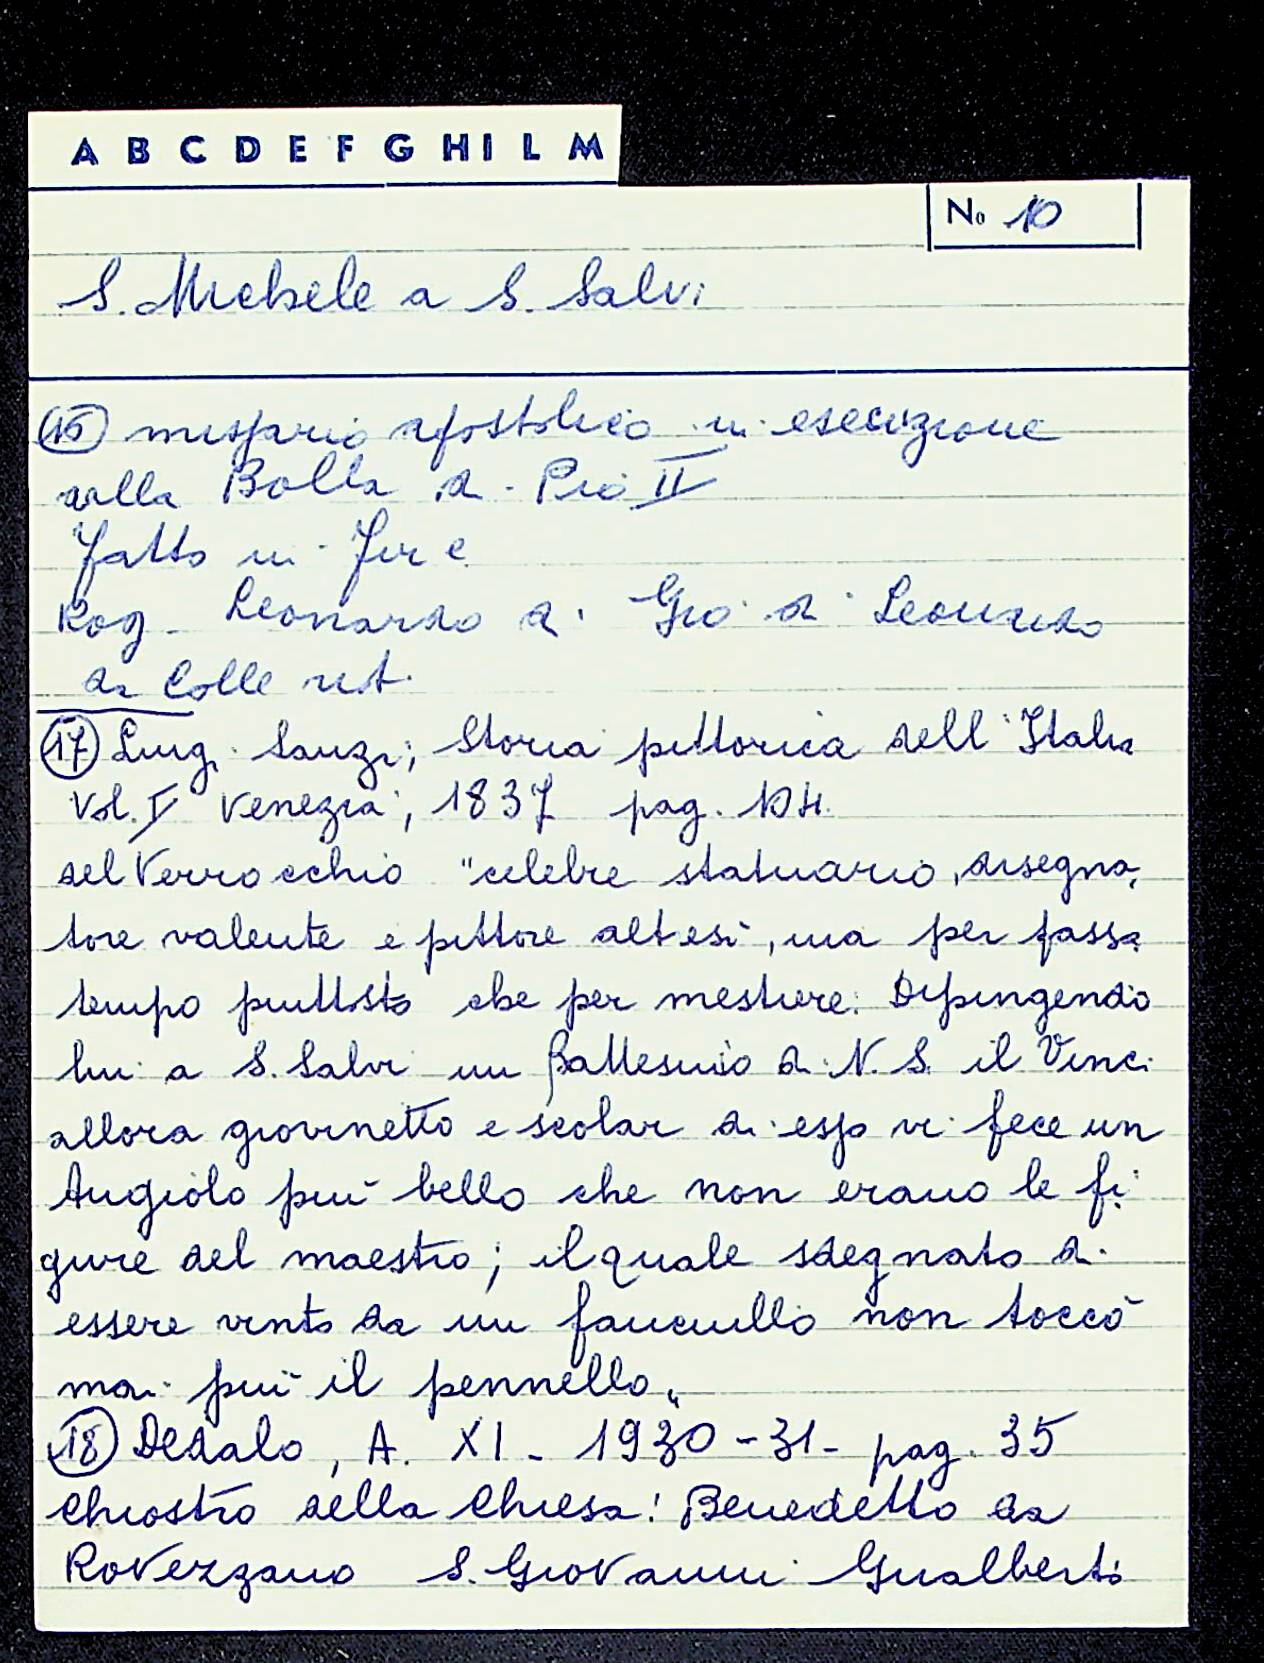 A B C D E F G H I L M
No 10
S. Michele a S. Salvi
16 missario apostolico in esecuzione
alla Bolla di Pio II
fatto in Fire
Rog. Leonardo di Gio di Leonardo
da Colle not.
17 Luigi Lanzi; Storia pittorica dell'Italia
Vol. I Venezia, 1837 pag. 104.
del Verrocchio "celebre statuario, disegna,
tore valente e pittore altesì, ma per passa
tempo piuttosto che per mestiere. Dipingendo
lui a S. Salvi un Battesimo di N. S. il Vinci
allora giovinetto e scolar di esso vi fece un
Angiolo più bello che non erano le fi
gure del maestro; il quale sdegnato di
essere vinto da un fanciullo non toccò
mai più il pennello"
18 Dedalo, A. XI - 1930-31- pag. 35
Chiostro della Chiesa: Benedetto da
Rovezzano S. Giovanni Gualberto